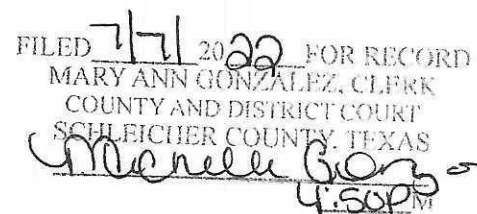 FILED 7/7/ 2022 FOR RECORD
MARY ANN GONZALEZ, CLERK
COUNTY AND DISTRICT COURT
SCHLEICHER COUNTY, TEXAS
Michelle
4:50P M